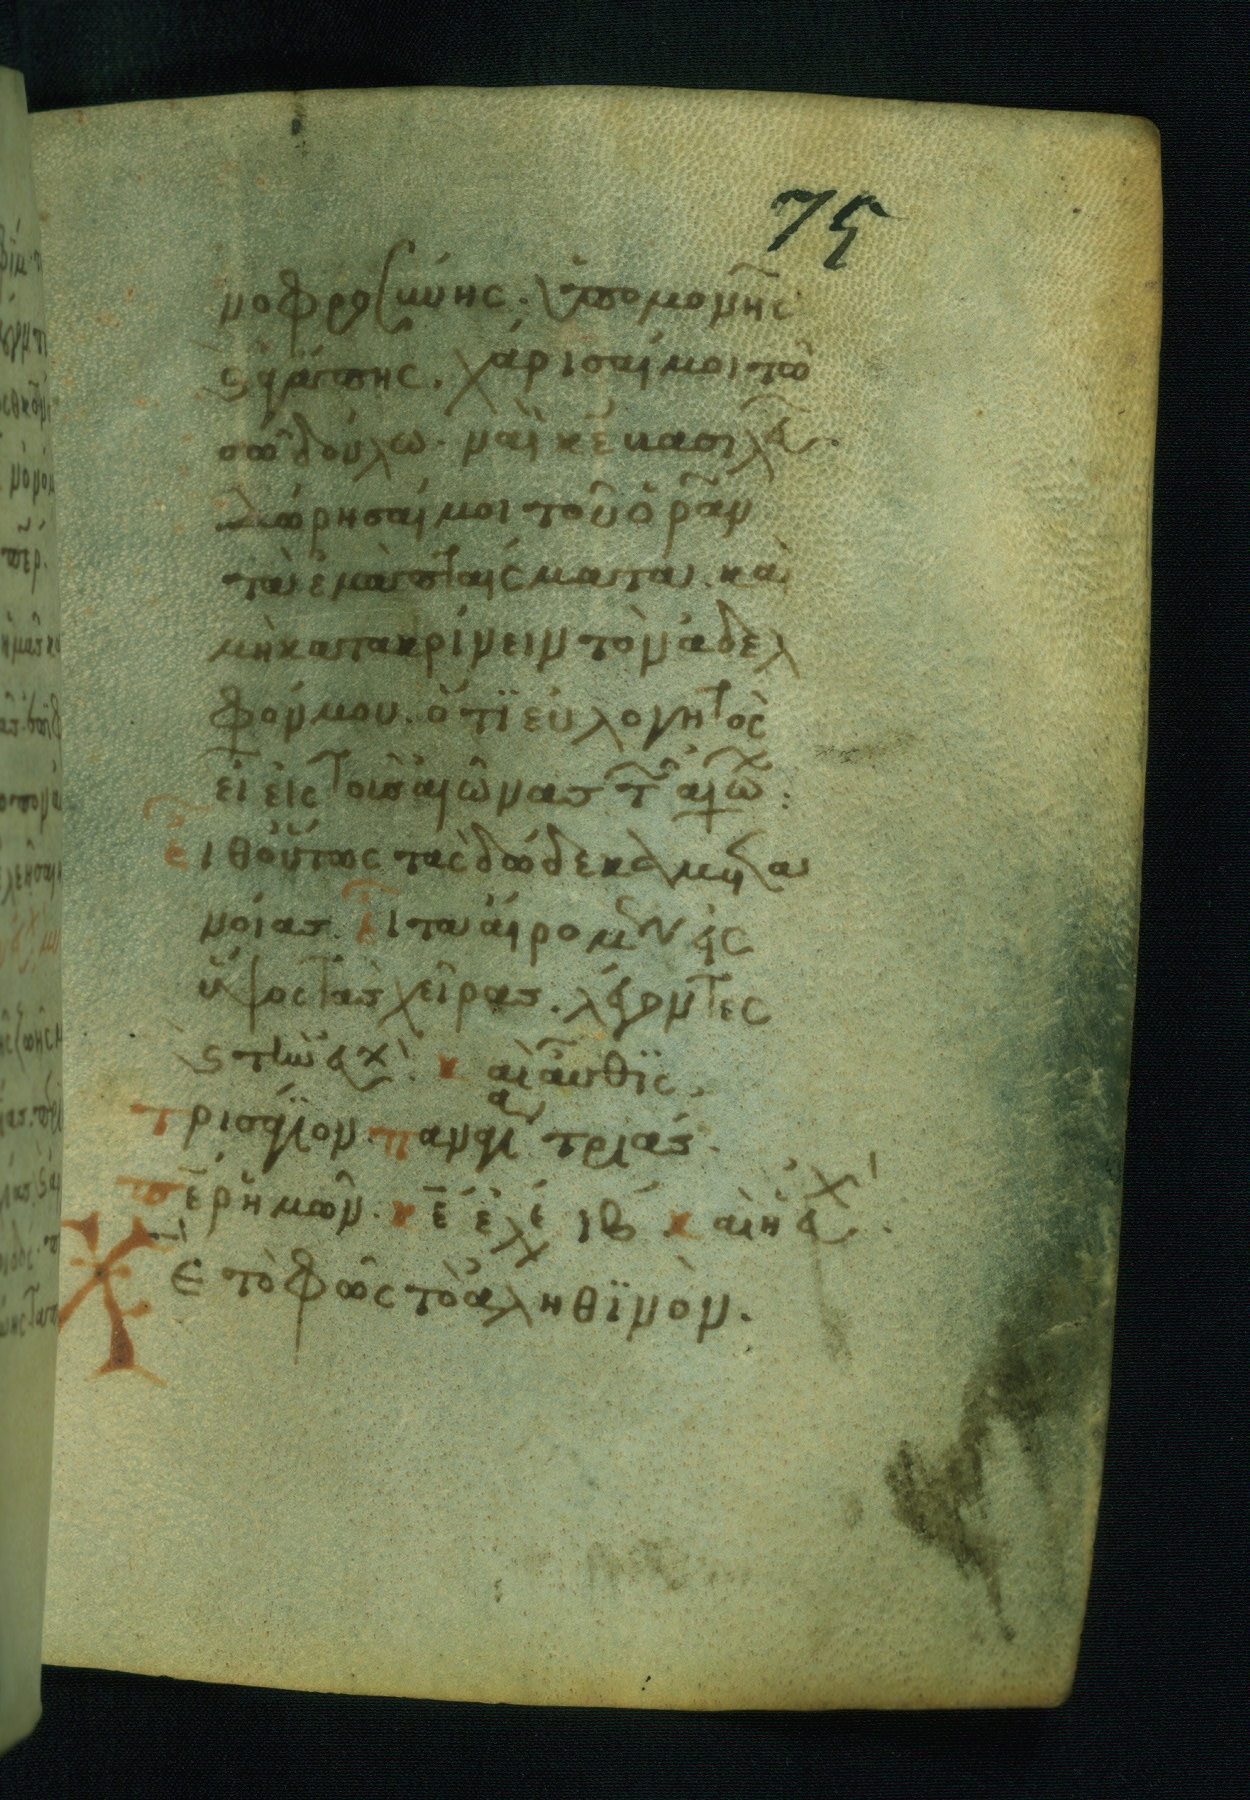 75
νοφροσύνης. ὑπομονῆς
ς ἀγάπης. χάρισαί μοι τῶ
σῶ δούλω. ναὶ κε βασιλεῦ.
δώρησαί μοι τοῦ ὁρᾶν
τὰ ἐμὰ πταίσματα. καὶ
μὴ κατακρίνειν τὸν ἀδελ
φόν μου. ὅτι εὐλογητὸς
εἶ εἰς τοὺς αἰῶνας τῶν αἰώ:
εἶθ οὕτως τὰς δώδεκα μετα
νοίας. εἶτα αἴρομεν εἰς
ὕψος τὰς χεῖρας. λέγοντες
ς τὴν εὐχ. καὶ αὖθις
τρισάγιον. παναγία τριάς.
περ ἡμῶν. κε ἐλέ ιβ καὶ ἡ εὐχ.
Χε τὸ φῶς τὸ ἀληθινὸν.